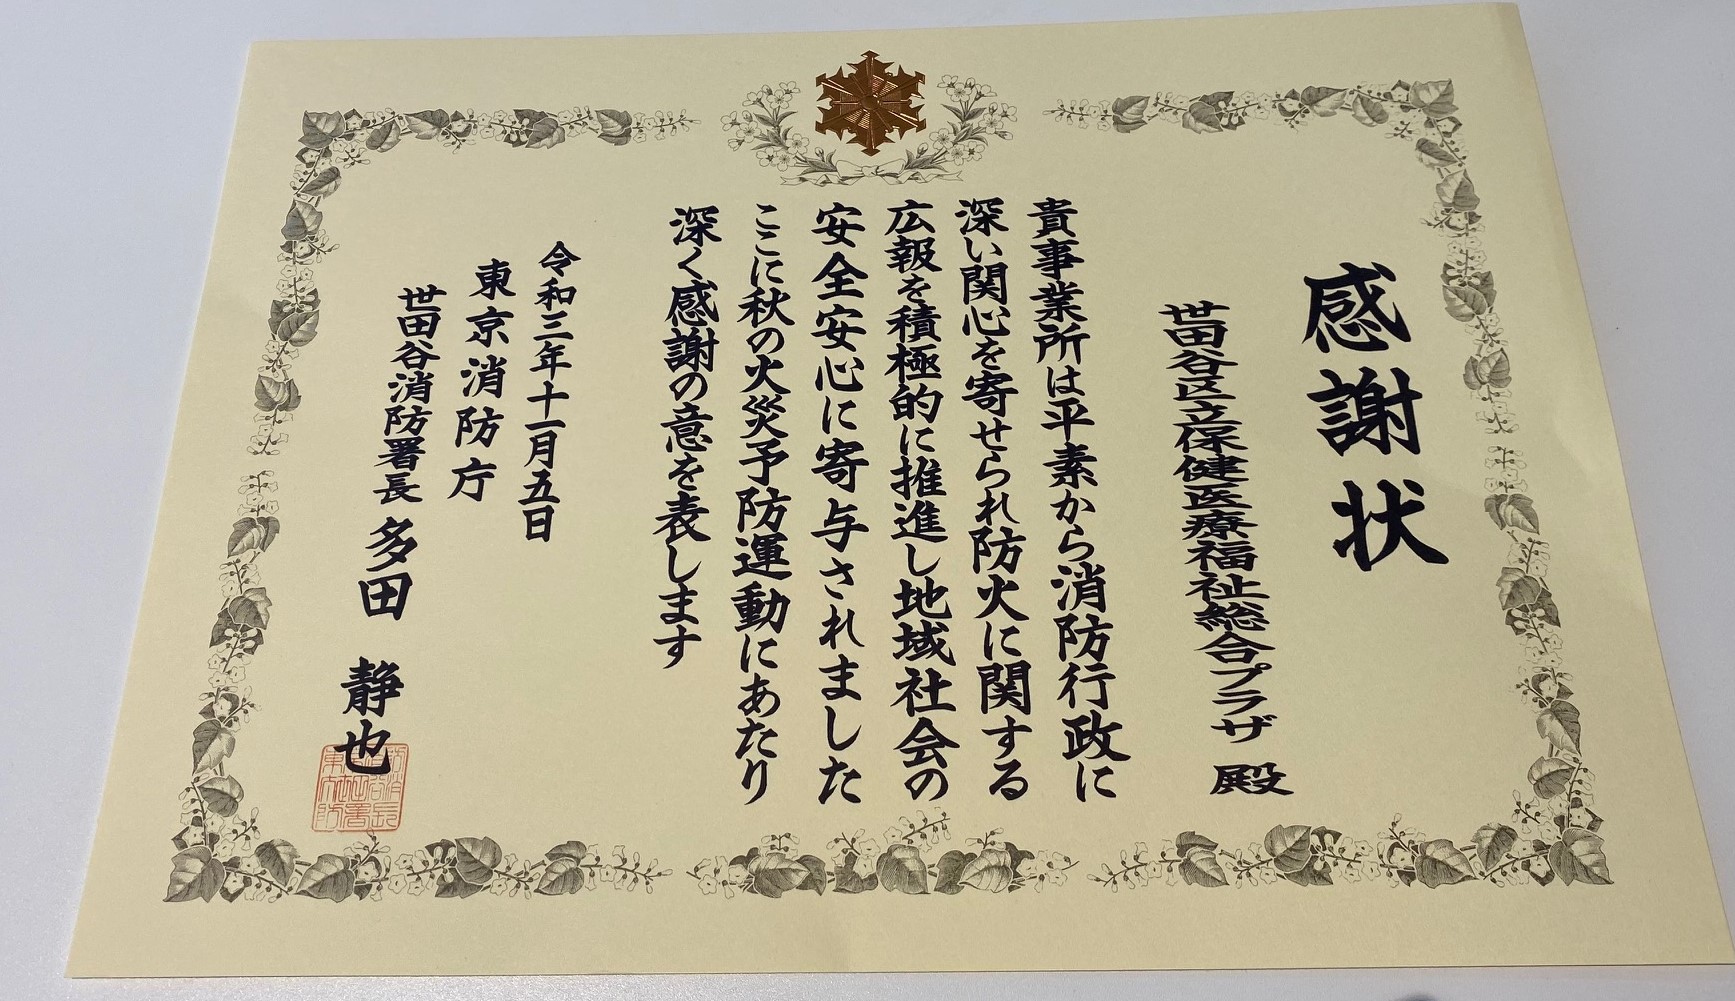 感謝状
世田谷区立保健医療福祉総合プラザ 殿
貴事業所は平素から消防行政に
深い関心を寄せられ防火に関する
広報を積極的に推進し地域社会の
安全安心に寄与されました
ここに秋の火災予防運動にあたり
深く感謝の意を表します
令和三年十一月五日
東京消防庁
世田谷消防署長 多田 静也